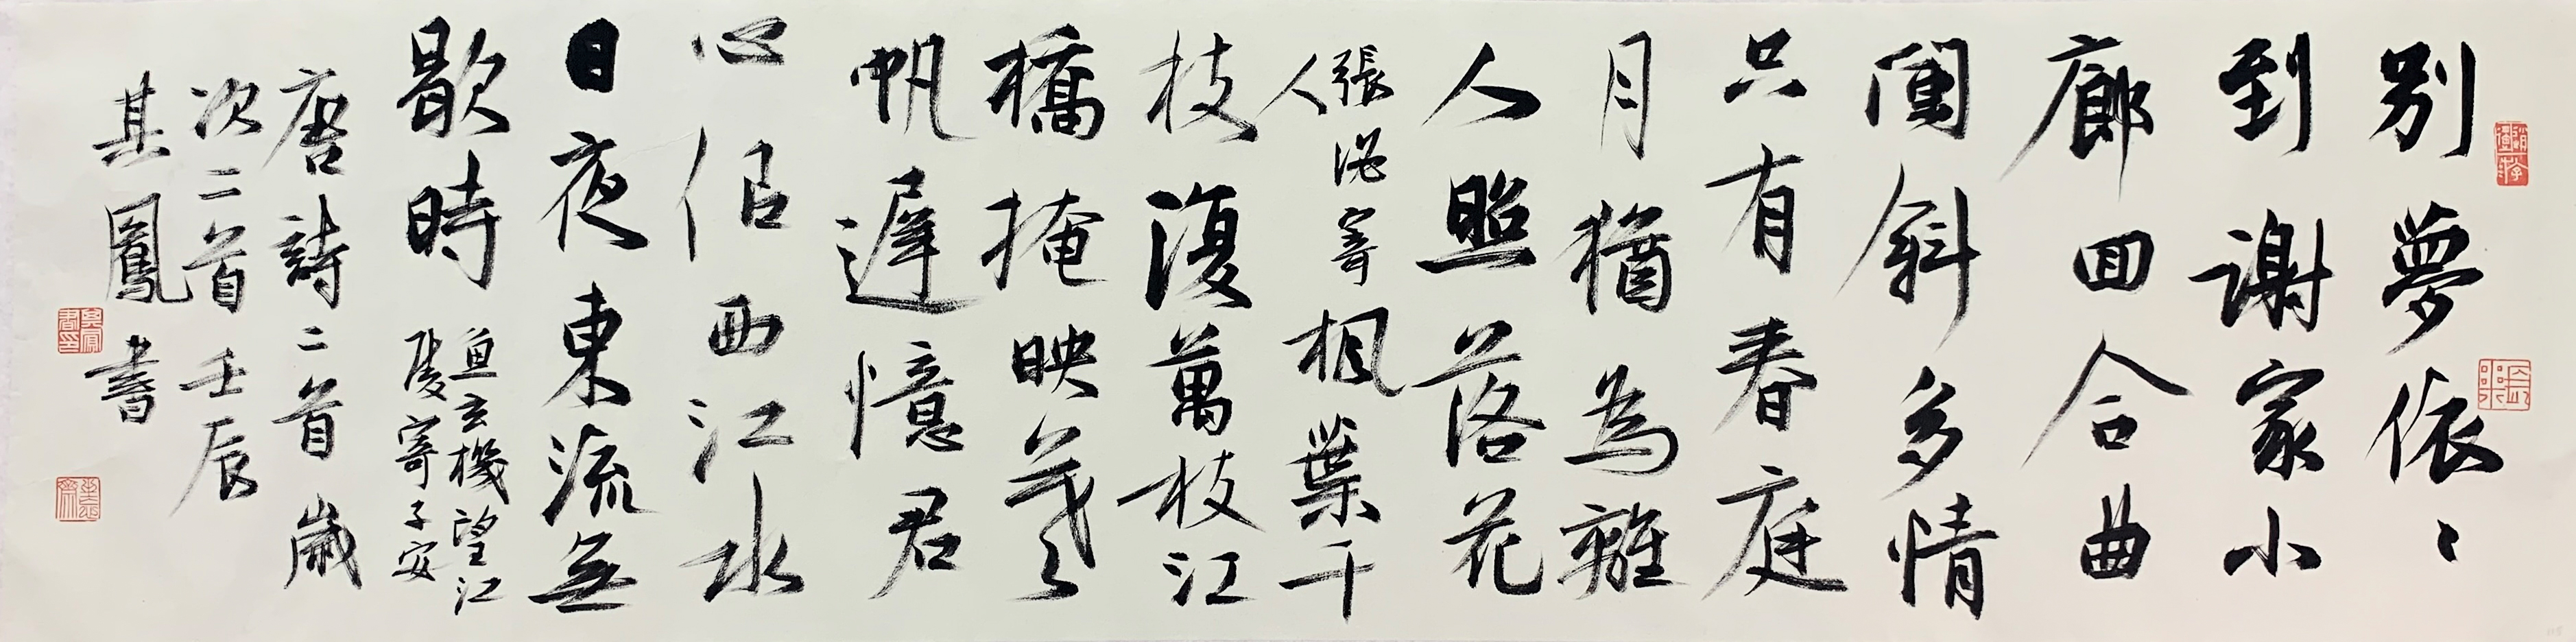 别夢依〻
到谢家小
廊回合曲
闌斜多情
只有春庭
月猶為離
人照落花
張泌寄
人
楓葉千
枝復萬枝江
橋掩映暮
帆遲憶君
心佀西江水
日夜東流無
歇時
鱼玄機望江
陵寄子安
唐詩二首歲
次二首壬辰
其鳳書